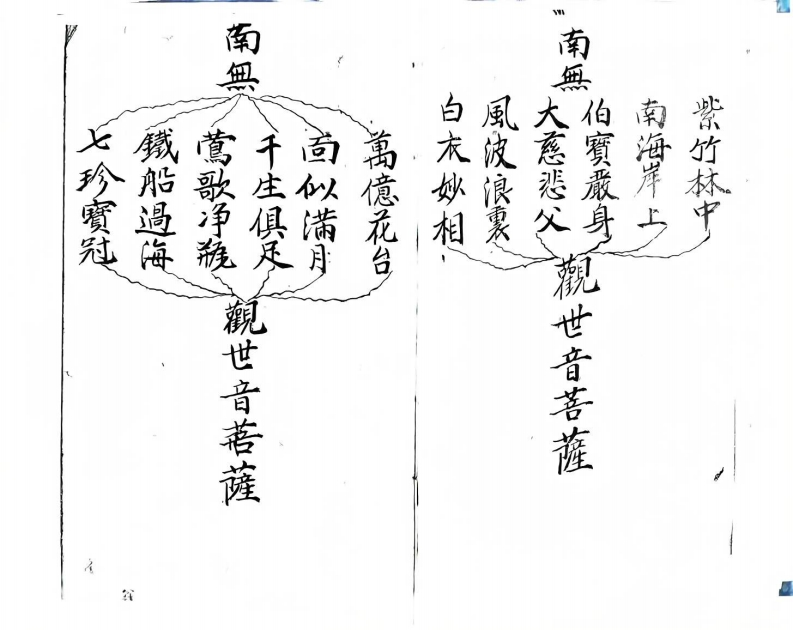 南無
紫竹林中
南海岸上
伯寶嚴身
大慈悲父
風波浪裏
白衣妙相
觀世音菩薩
南無
萬億花台
面似滿月
千生俱足
鶯歌净瓶
鐵船過海
七珍寶冠
觀世音菩薩